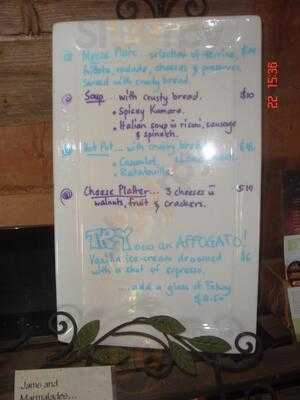 Meeze Plate... selection of terrine,
frittata, roulade, cheeses & preserves,
served with crusty bread.
Soup with crusty bread. $10
• Spicey Kumara.
• Italian soup w risoni, sausage
& spinach.
Hot Pot... with crusty bread
• Cassoulet
• Ratatouille.
Cheese Platter... 3 cheeses w
walnuts, fruit & crackers.
TRY
ooo an AFFOGATO!
Vanilla ice-cream drowned $6
with a shot of espresso.
...add a glass of Tokay
22 15:36
Jams and
Marmalades...